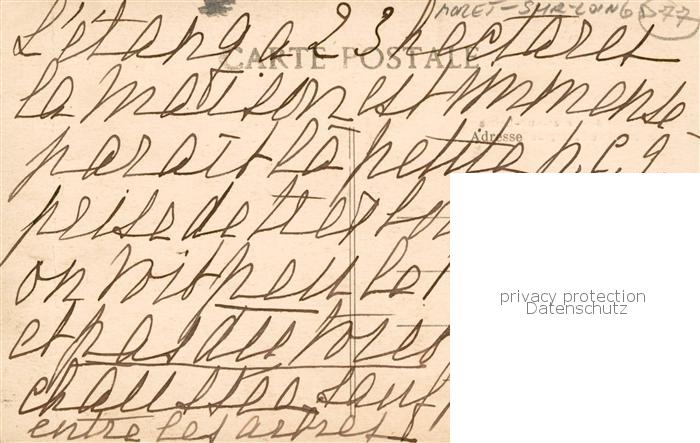 MORET-SUR-LOING D-77
CARTE POSTALE
L'étang a 23 hectares
la maison est immense
Adresse
paraît là petite p.c.q.
prise de tres loin
on voit peu le
et pas du tout
chaussée sauf
entre les arbres
privacy protection
Datenschutz